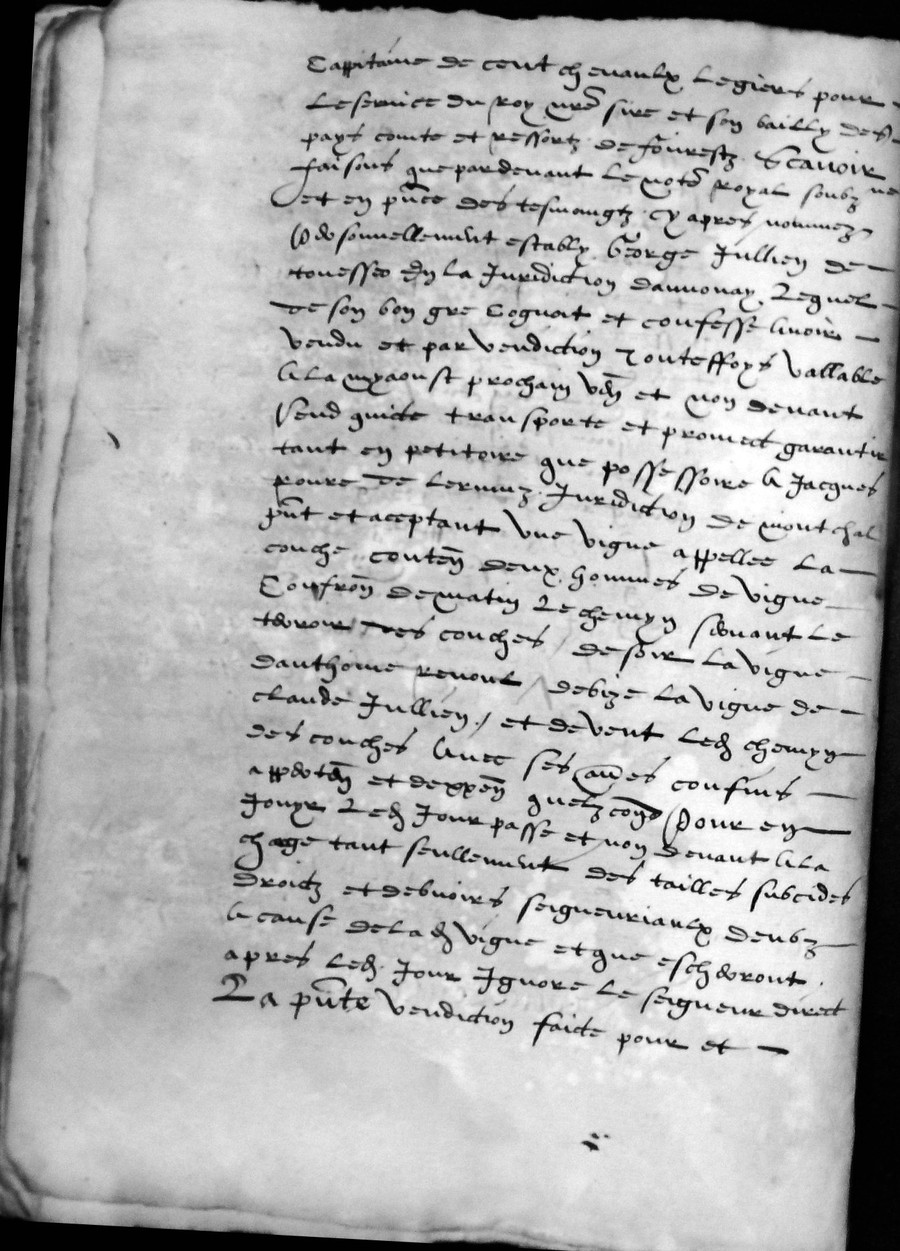 Cappitaine de cent chevaulx legiers pour
le service du roy nre sire et son bailly des
pays conte et ressortz de fourestz Scavoir
faisons que par devant le note royal soubz ne
et en pnce des tesmoingtz cy apres nommez
personnellement estably George Jullien de
touesseo en la Juridiction dannonay Lequel
de son bon gre Cognoit et confesse Avoir
vendu et par vendiction toutteffoys vallable
A la myaoust prochain ven et non devant
Vend quicte transporte et promect garantir
tant en petitoire que possessoire A Jacques
roure de Juridiction de montchal
pnt et aceptant vne vigne appellee La
couche conten deux hommes de vigne
Confron de matin Le chemyn servant le
terroir des couches / de soir La vigne
danthoine renoul debize La vigne de
claude Jullien / et de vent Led chemyn
des couches Avec ses aues confins
apperten et deppen quelzcong Pour en
Jouyr Led Jour passe et non devant A la
charge tant seullement des tailles subcides
droictz et debvoirs seigneuriaulx deubz
A cause de lad vigne et que escherront
apres Led Jour Ignore Le seigneur direct
La pnte vendiction faicte pour et